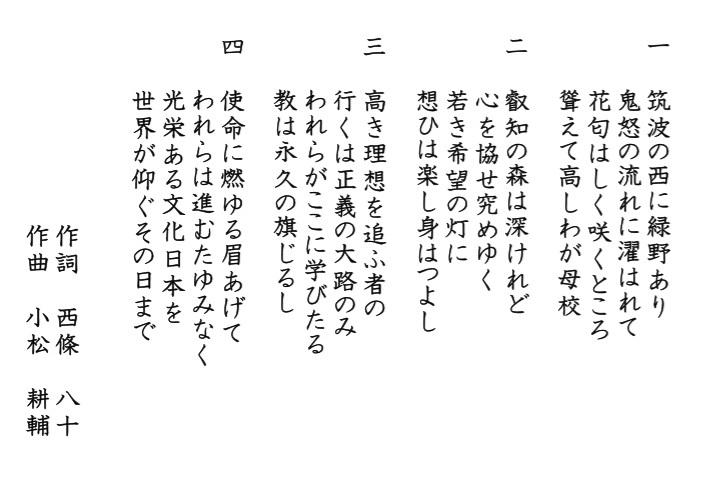 一
筑波の西に緑野あり
鬼怒の流れに濯はれて
花匂はしく咲くところ
聳えて高しわが母校
二
叡知の森は深けれど
心を協せ究めゆく
若き希望の灯に
想ひは楽し身はつよし
三
高き理想を追ふ者の
行くは正義の大路のみ
われらがここに学びたる
教は永久の旗じるし
四
使命に燃ゆる眉あげて
われらは進むたゆみなく
光栄ある文化日本を
世界が仰ぐその日まで
作詞　西條　八十
作曲　小松　耕輔